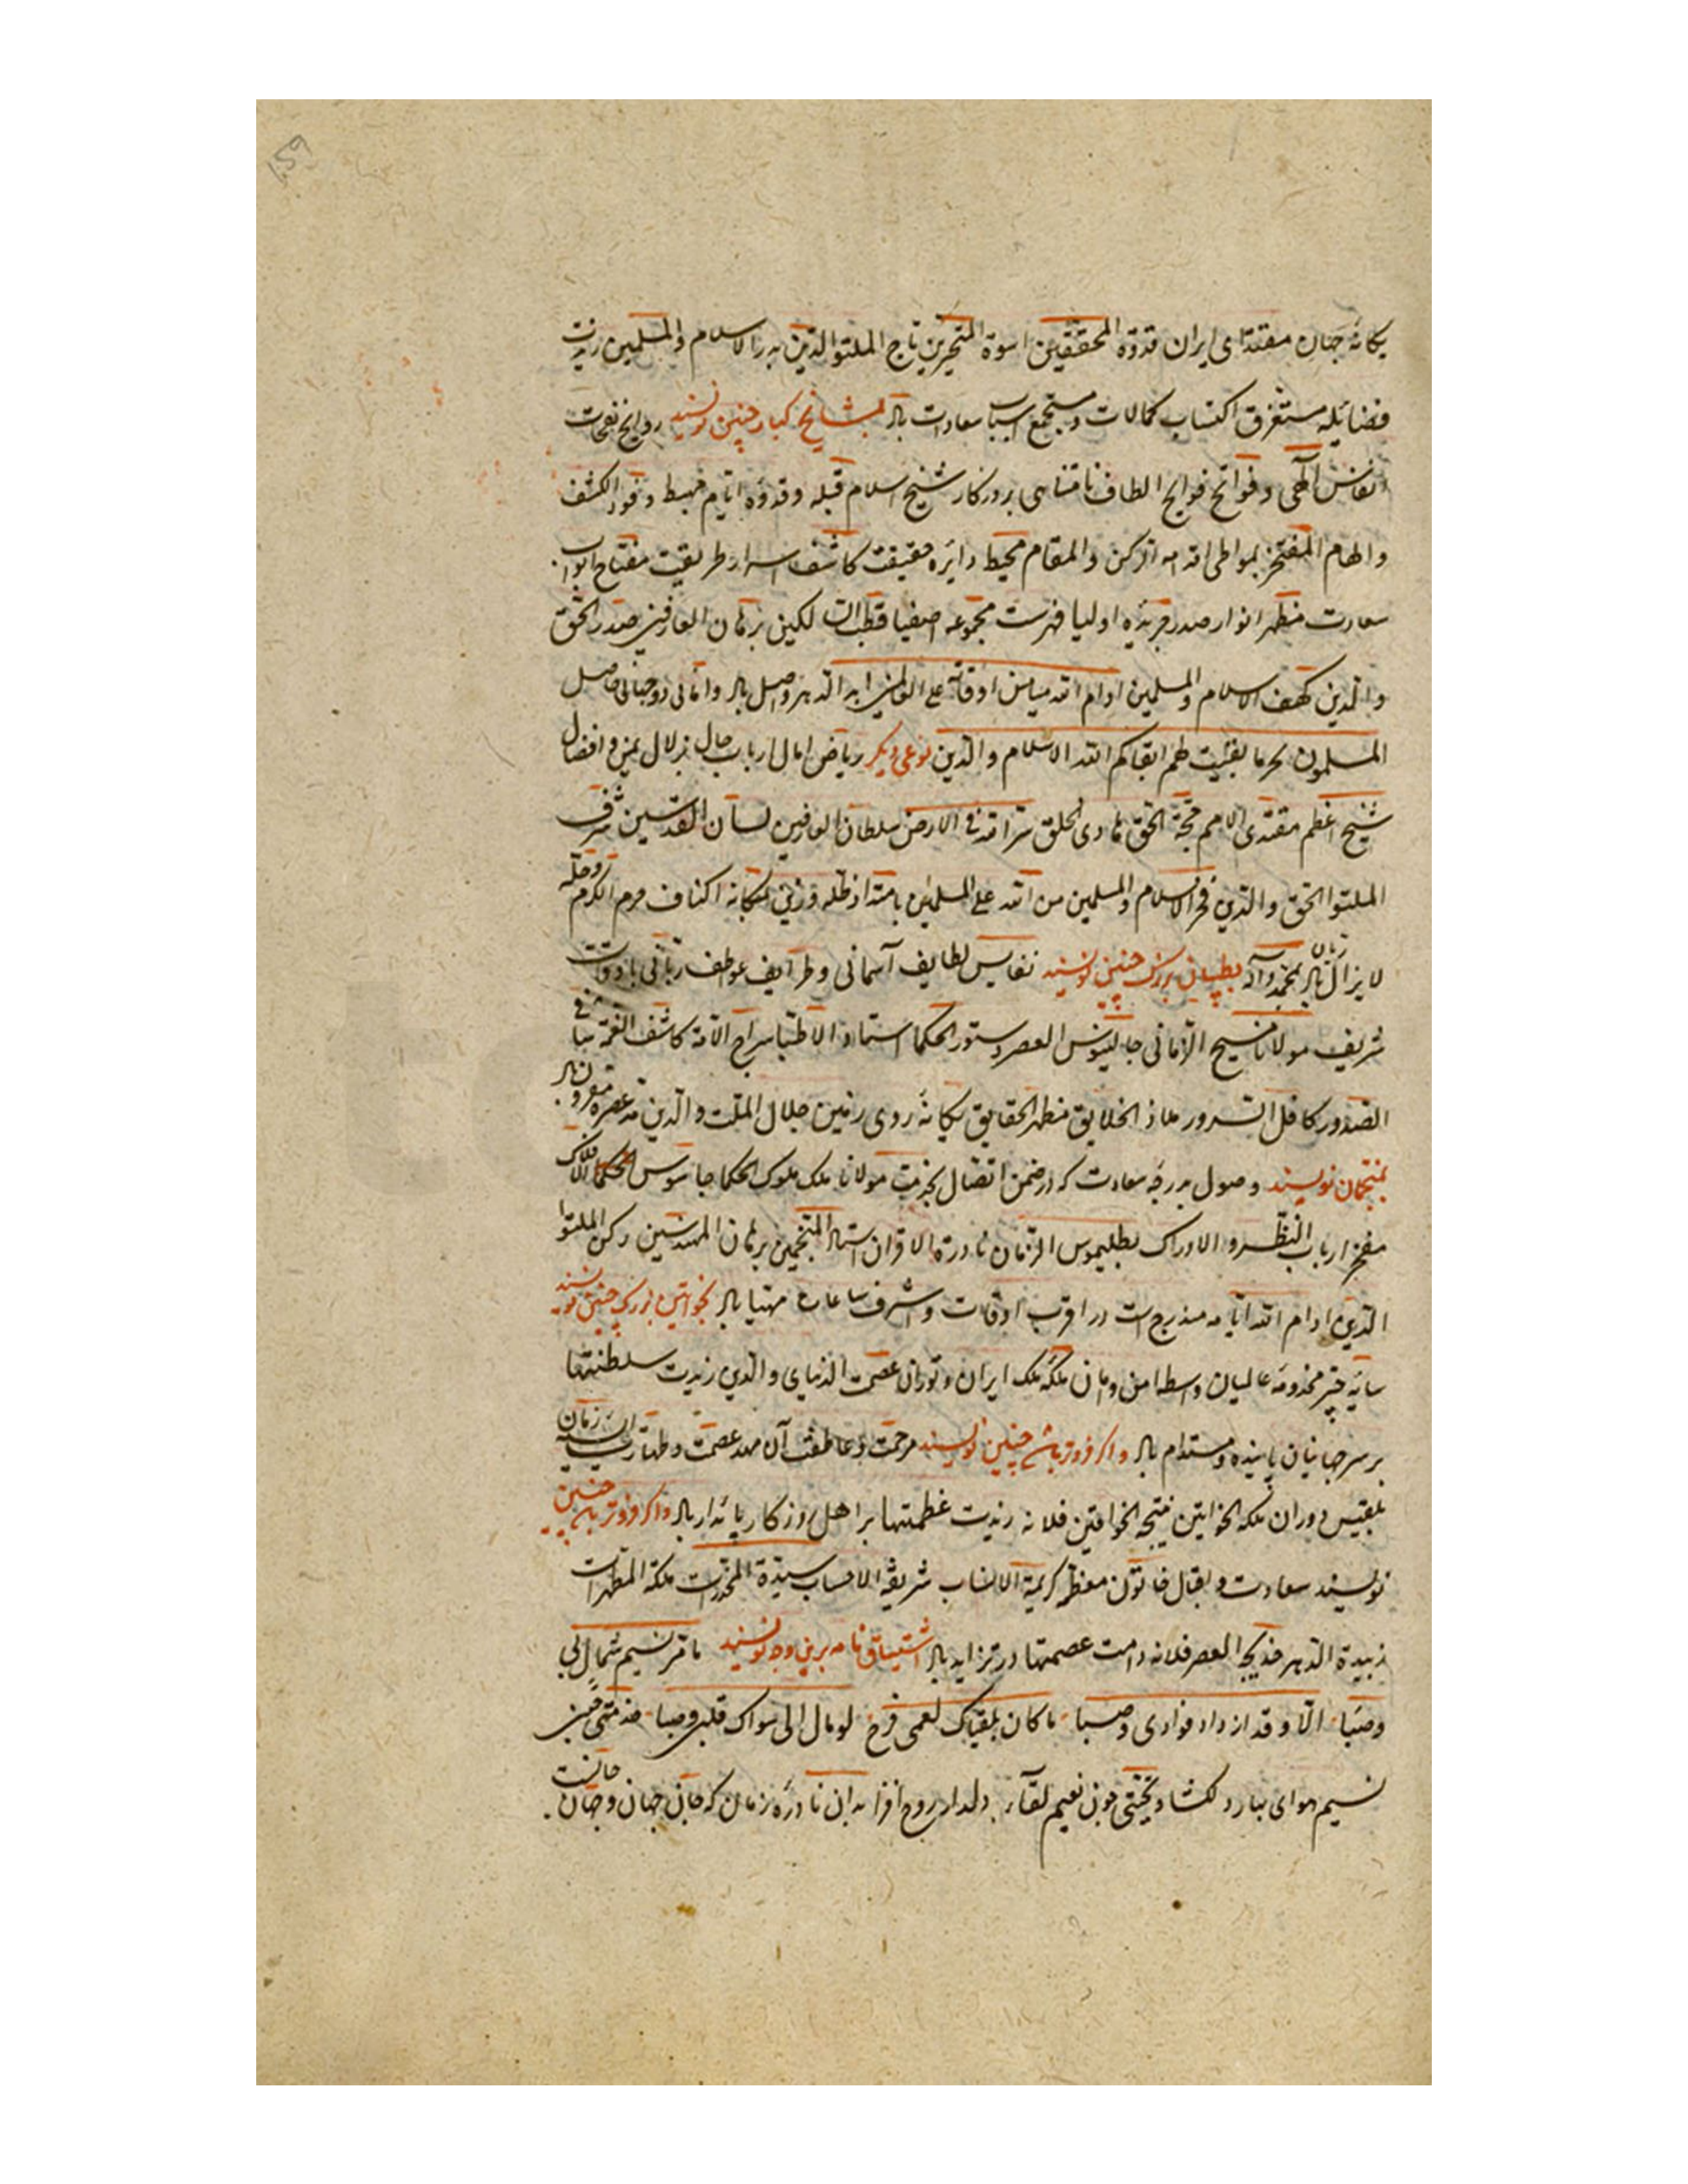 یکانهٔ جهان مقتدای ایران قدوة المحققین اسوة المتبحرین تاج الملة والدین بدر الاسلام والمسلمین زیدت
فضایله مستغرق اکتساب کمالات و مستجمع اسباب سعادات باد بمشایخ کبار چنین نویسند روایح نفحات
انفاس الهی و فواتح فوایح الطاف نامتناهی بروزکار شیخ اسلام قبله وقدوهٔ ایام مهبط وفود الکشف
والهام المفتخر بمواطی اقدامه ارکن والمقام محیط دایره حقیقت کاشف اسرار طریقت مفتاح ابواب
سعادت مظهر انوار صدر جریدهٔ اولیا فهرست مجموعه اصفیا قطب السالکین برهان العارفین صدر الحق
والدین کهف الاسلام والمسلمین ادام الله میامن اوقاته علی العالمین ابد الدهر واصل باد وامانی دوجهانی حاصل
المسلمون بخیر ما بقیت لهم ابقاکم الله الاسلام والدین نوعی دیکر ریاض امال ارباب حال بزلال یمن وافضال
شیخ اعظم مقتدی الامم حجة الحق هادی الخلق سر الله فی الارض سلطان العارفین لسان القدسین شرف
الملتوا الحق والدین فخر الاسلام والمسلمین من الله علی المسلمین بامتداد ظله وزین بمکانه اکناف حرم الکرم وحله
لا یزال زیان باد بمحمد وآله بطبیبان بزرک چنین نویسند نفایس لطایف آسمانی وظرایف عواطف ربانی باوقات
شریف مولانا مسیح الزمانی جالینوس العصر دستور الحکما استاد الاطبا سراج الامة کاشف الغمة شافی
الصدور کافل السرور ملاذ الخلایق مظهر الحقایق یکانهٔ روی زمین جلال الملت والدین مد عصره مقرون باد
بمنجمان نویسند وصول بدرجه سعادت که درضمن اتصال بخدمت مولانا ملک ملوک الحکما جاسوس الافلاک
مفخر ارباب النظر و الادراک بطلیموس الزمان نادرة الاقران استاد المنجمین برهان المهندسین رکن الملتوا
الدین ادام الله ایامه مندرج است در اقرب اوقات واشرف ساعات مهیا باد بخواتین بزرک چنین نویسند
سایهٔ چتر مخدومهٔ عالمیان واسطه امن وامان ملکهٔ ملک ایران وتوران عصمت الدنیای والدین زیدت سلطنتها
بر سر جهانیان پاینده ومستدام باد واکر فروتر باشد چنین نویسند مرحمت وعاطفت آن مهد عصمت وطهارت آسیه زمان
بلقیس دوران ملکه الخواتین نتیجه الخواقین فلانه زیدت عظمتها بر اهل روزکار پایدار باد واکر فروتر باشد چنین
نویسند سعادت و اقبال خاتون معظم کریمة الانساب شریفة الاحساب سیدة المخدرات ملکة المطهرات
زبیدة الدهر خدیجة العصر فلانه دامت عصمتها در تزاید باد اشتیاق نامه برین وجه نویسند ما مر نسیم شمال بی
وصبا الا وقد ازداد فوادی وصبا ما کان بلقیاک لعمی فرح لو مال الی سواک قلبی وصبا
نسیم هوای بهار دلکشا وبختی چون نعیم لقاء دلدار روح افزا بدان نادرهٔ زمان که جان جهان وجهان جانست